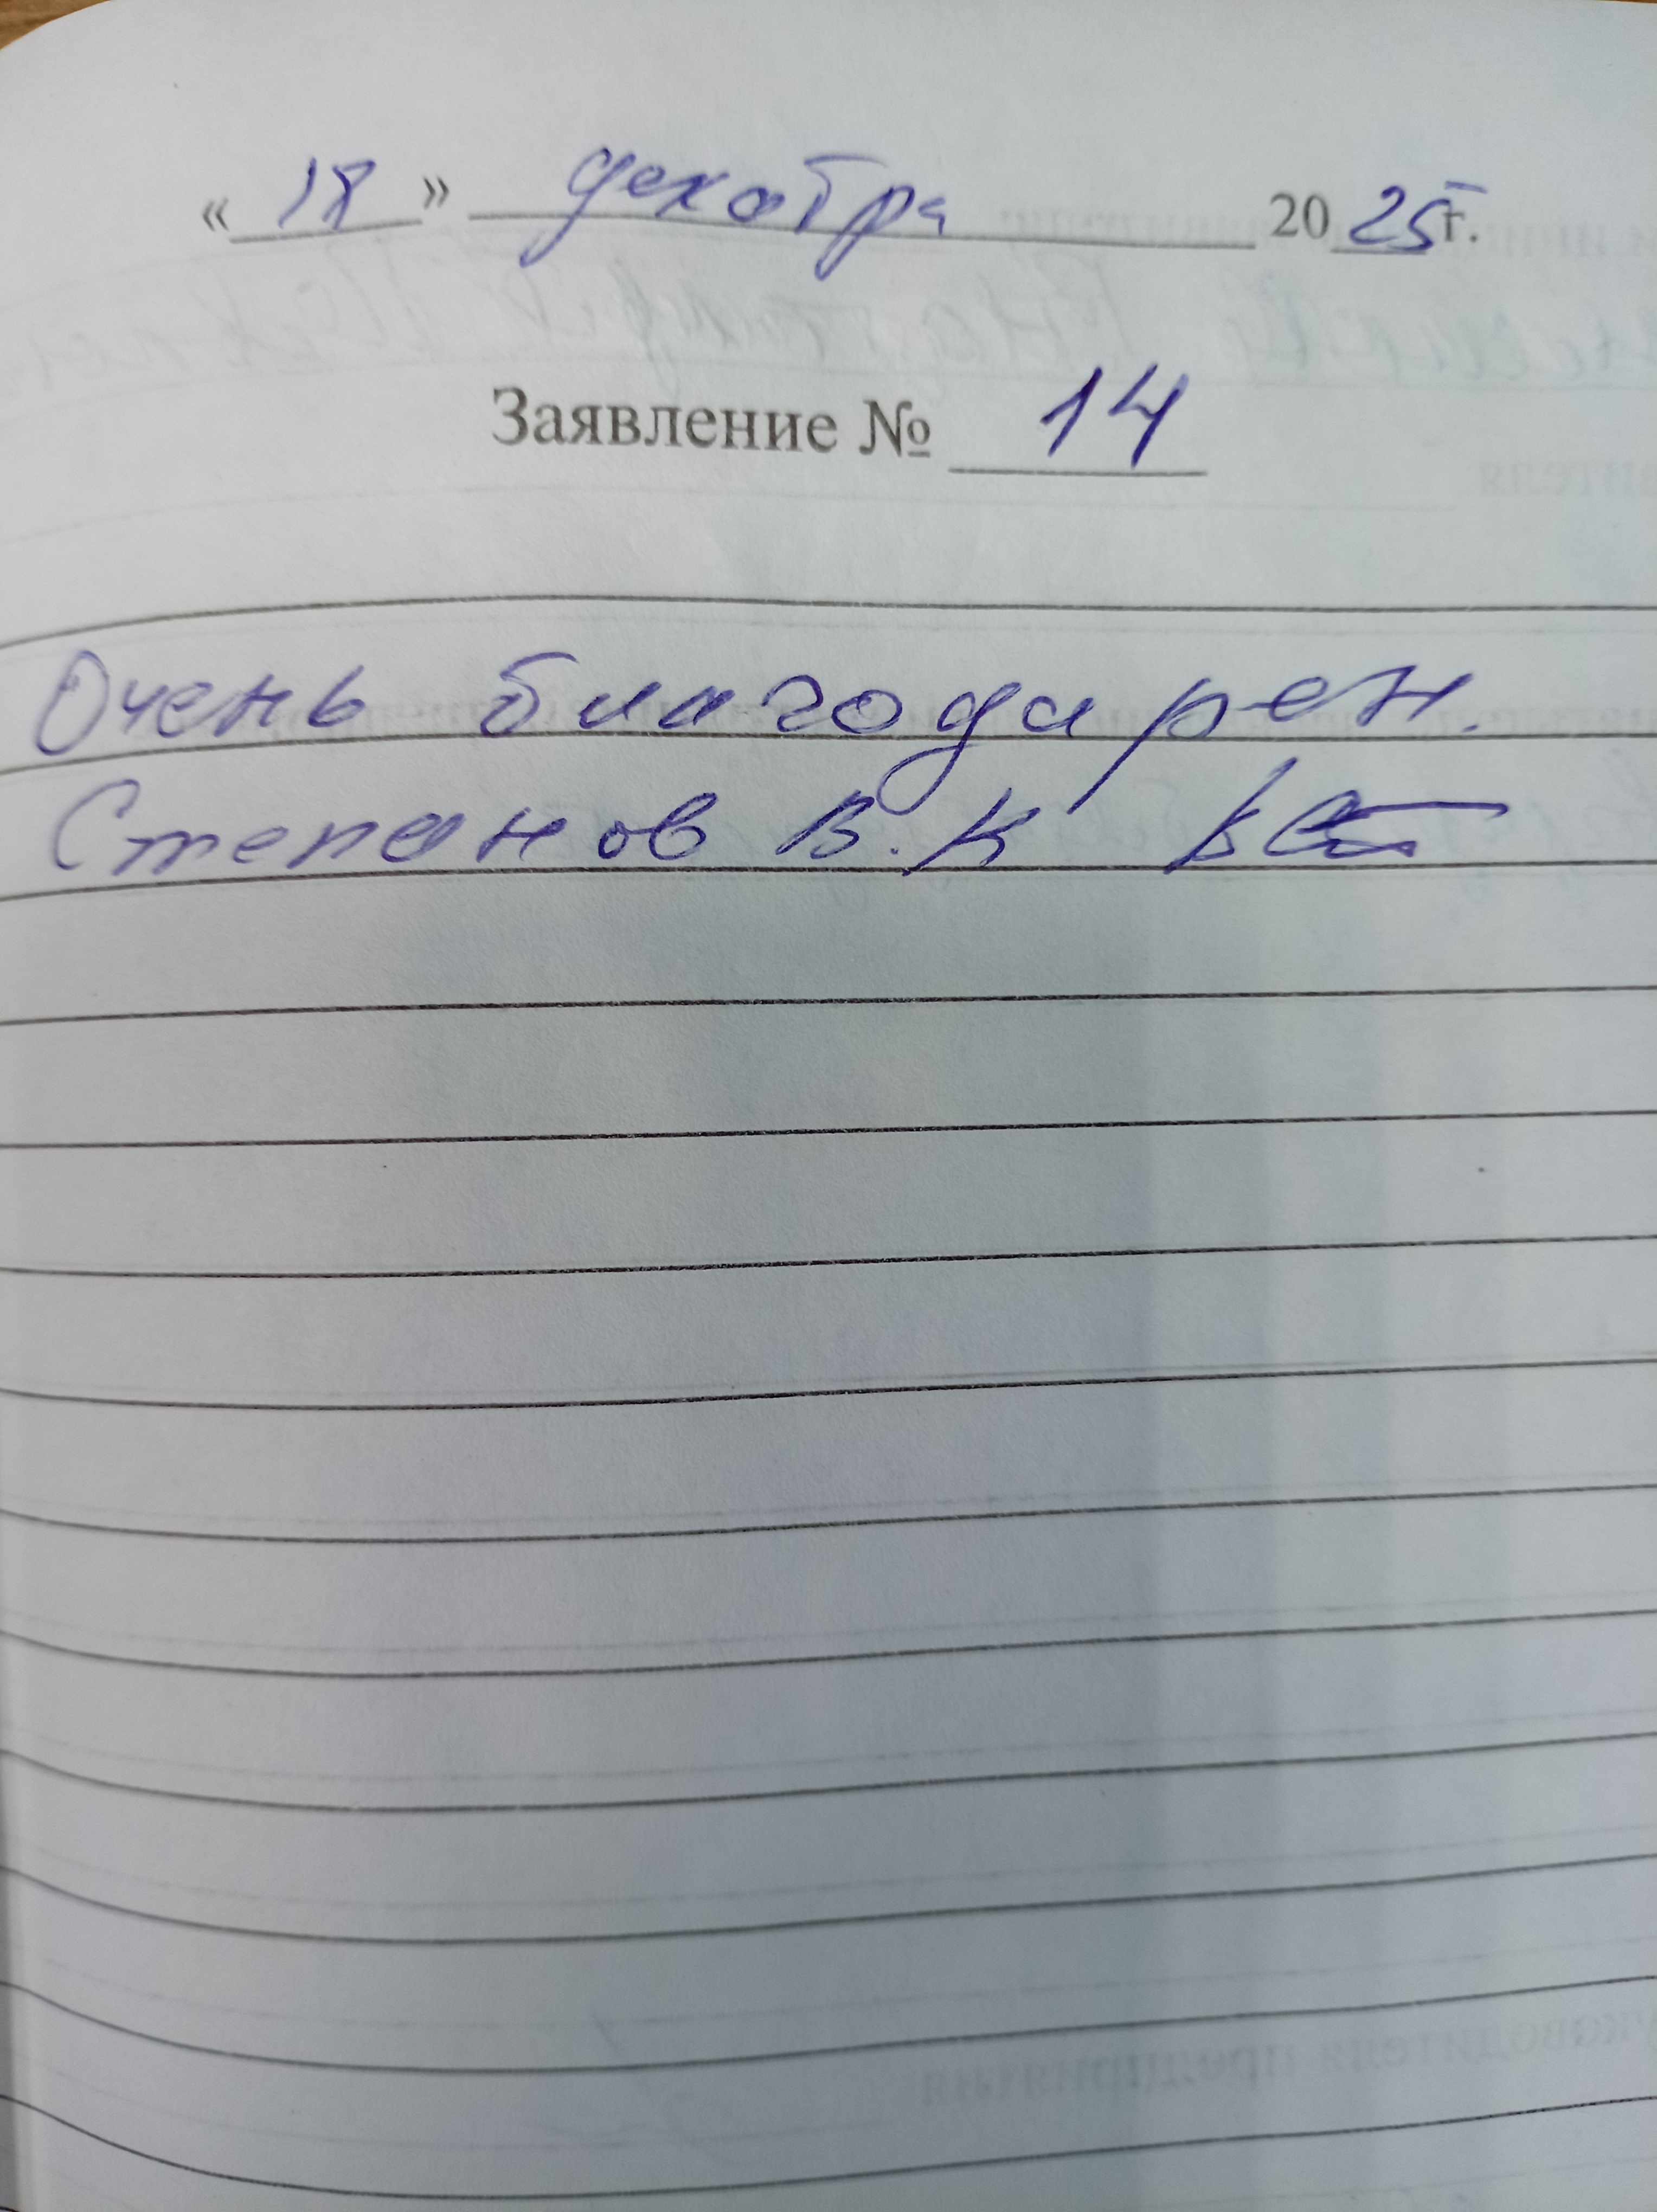 « 18 » декабря 20 25 г.
Заявление № 14
Очень благодарен.
Степанов В. К